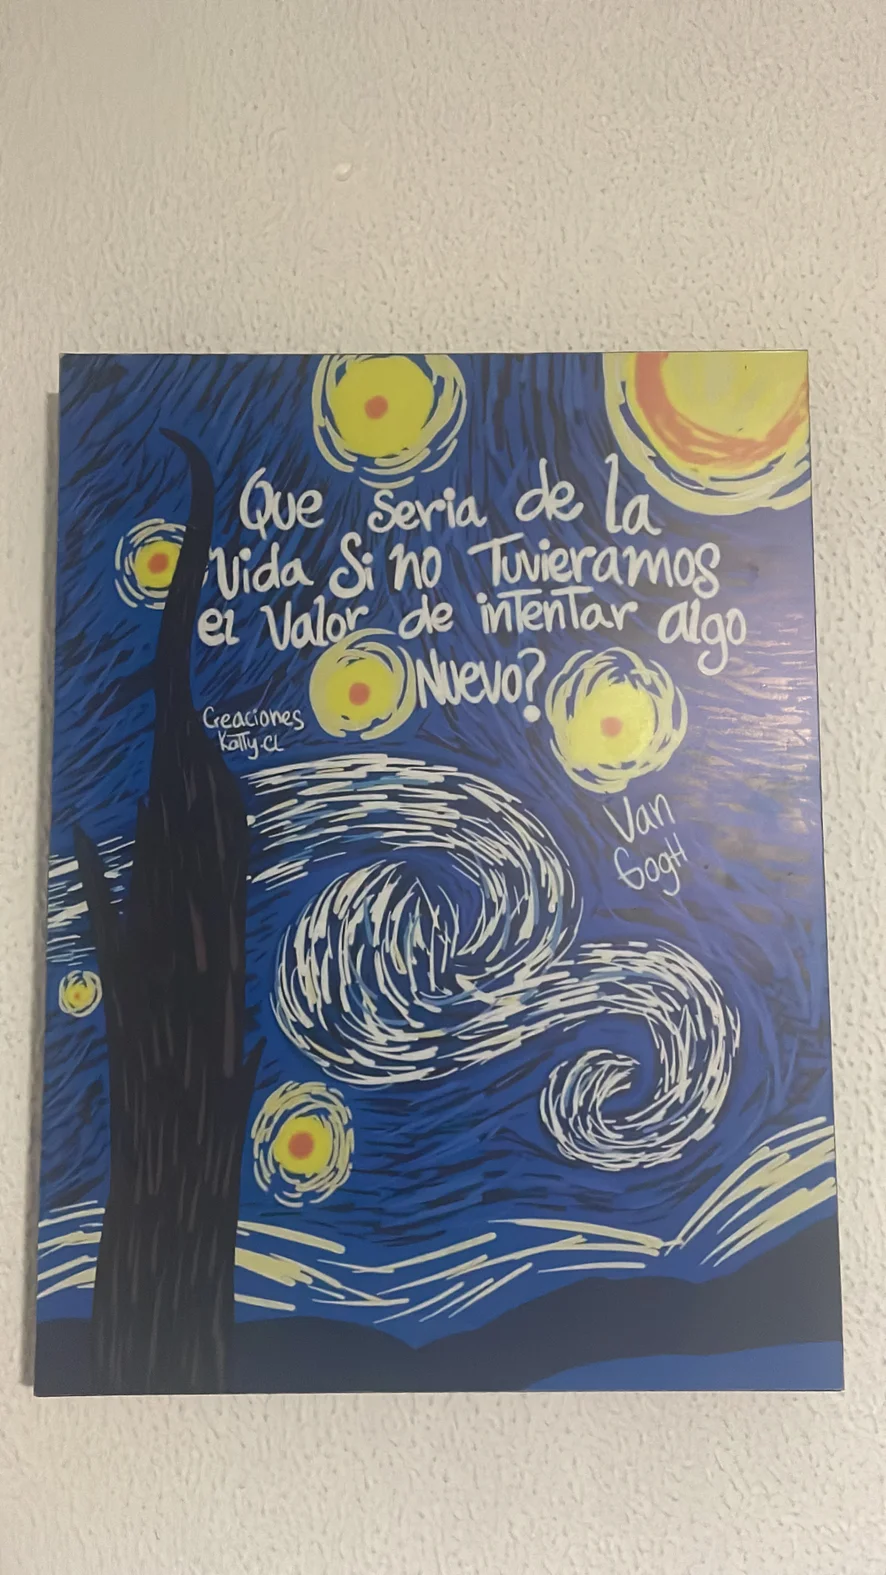 Que seria de la
Vida Si no Tuvieramos
el Valor de intentar algo
Nuevo?
Creaciones
Katty.CL
Van
Gogh